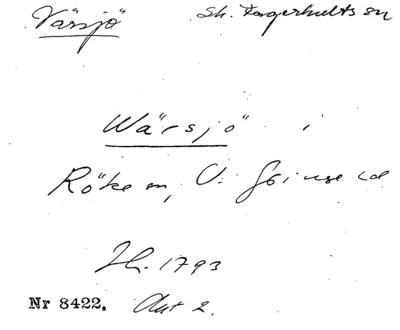 Värsjö Sk. Fagerhults sn
Wärsjö i
Röke sn, V. Göinge hd
Jb. 1793
Nr 8422. Avt 2.